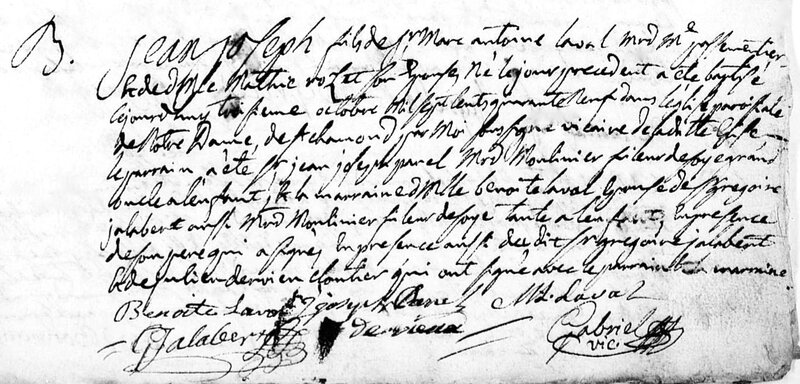 B. jean joseph fils de sr Marc antoine laval Mrd Me passementier
& de dlle Mathie rozet son Epouse, Né le jour precedent a été baptisé
le jourd'huy troisieme octobre Mil sept cents quarante Neuf dans l'église paroissiale
de Notre Dame, de st chamond, par Moi soussigné vicaire de laditte Eglise
le parrain a été sr jean joseph panel Mrd Moulinier fileur de soye grand
oncle a l'enfant, & la marraine dlle benoite laval Epouse de sr gregoire
jalabert aussi Mrd Moulinier fileur de soye tante a l'enfant, En presence
de son pere qui a signé, En presence aussi dudit sr gregoire jalabert
& de julien dervieu cloutier qui ont signé avec le parrain & la marraine
Benoite Laval joseph Panel M A Laval
G Jalabert dervieux Gabriel
vic.